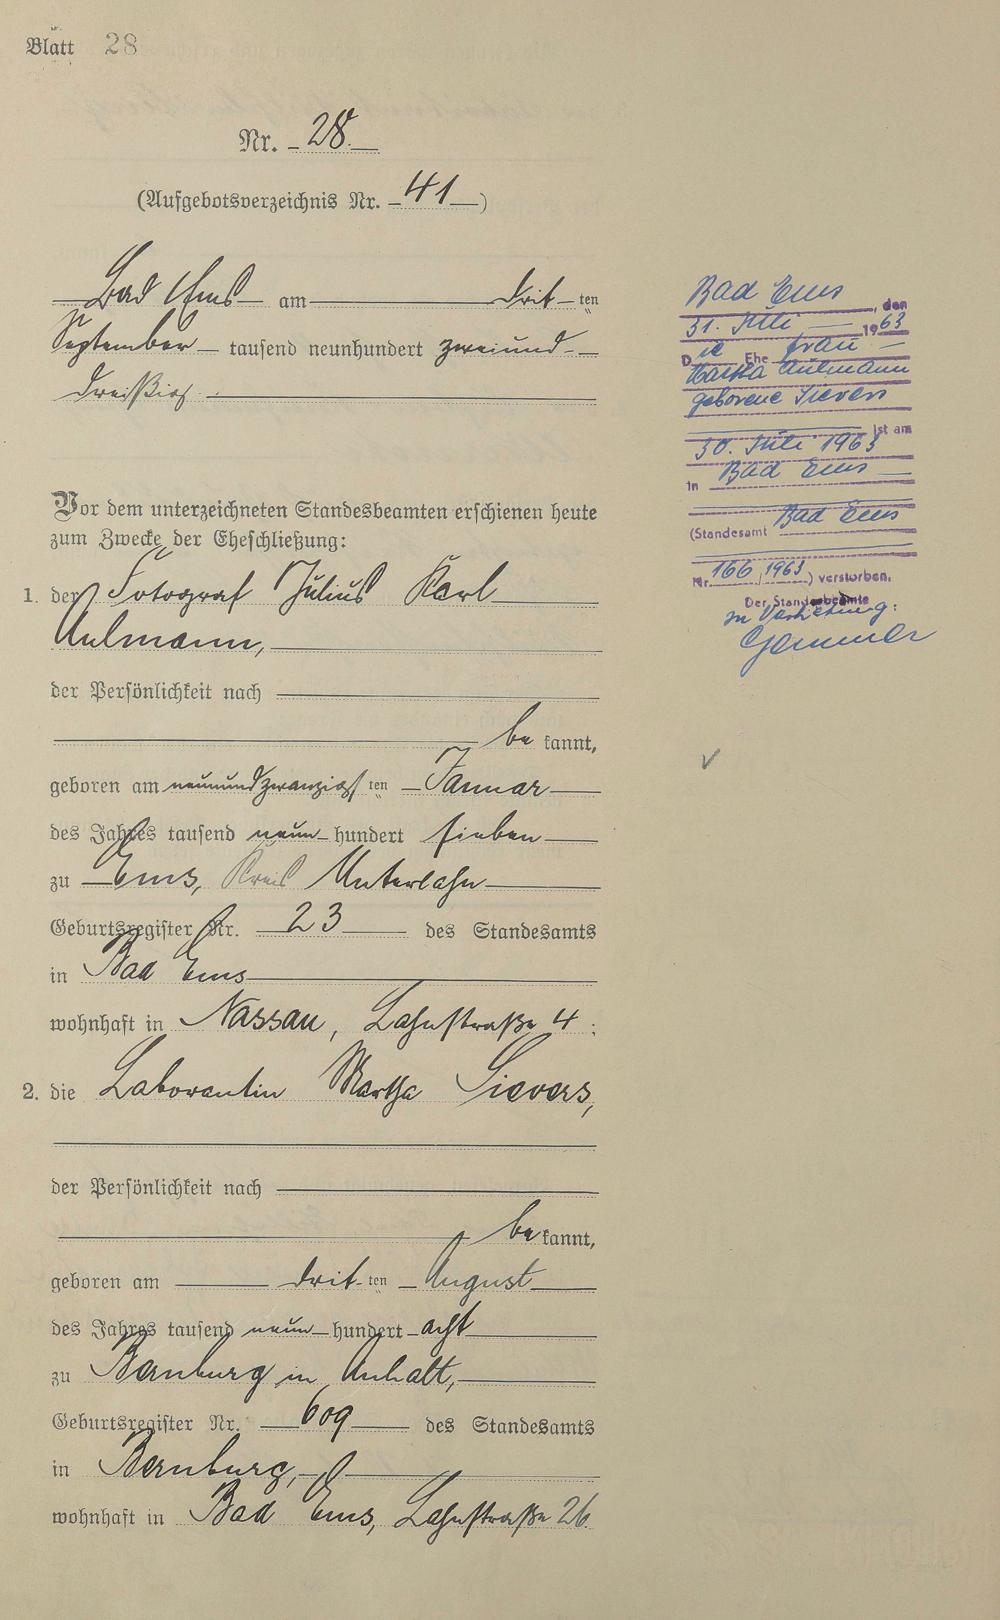 Blatt 28
Nr. 28.
(Aufgebotsverzeichnis Nr. 41)
Bad Ems am drit ten
September tausend neunhundert zweiund-
dreißig.
Vor dem unterzeichneten Standesbeamten erschienen heute
zum Zwecke der Eheschließung:
1. der Fotograf Julius Karl
Aulmann,
der Persönlichkeit nach
be kannt,
geboren am neunundzwanzigs ten Januar
des Jahres tausend neun hundert sieben
zu Ems, Kreis Unterlahn
Geburtsregister Nr. 23 des Standesamts
in Bad Ems
wohnhaft in Nassau, Lahnstraße 4.
2. die Laborantin Martha Sievers,
der Persönlichkeit nach
be kannt,
geboren am drit ten August
des Jahres tausend neun hundert acht
zu Bernburg in Anhalt,
Geburtsregister Nr. 609 des Standesamts
in Bernburg,
wohnhaft in Bad Ems, Lahnstraße 26
Bad Ems, den
31. Juli 1963
Die Ehefrau
Martha Aulmann
geborene Sievers
ist am
30. Juli 1963
in Bad Ems
(Standesamt Bad Ems
Nr. 166/1963) verstorben.
Der Standesbeamte
in Vertretung: